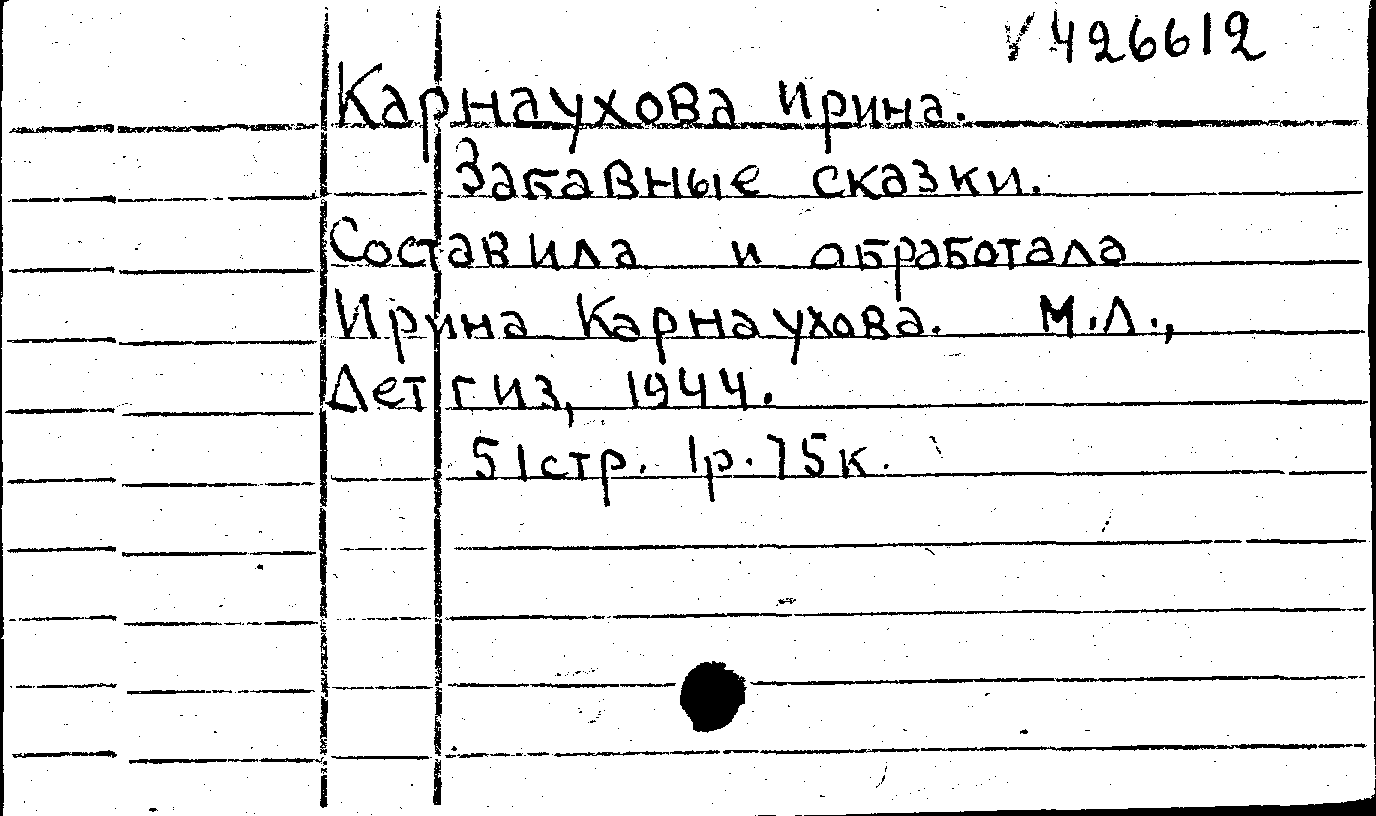 V 426612
Карнаухова Ирина.
Забавные сказки.
Составила и обработала
Ирина Карнаухова. М.Л.,
Детгиз, 1944.
51стр. 1р.75к.